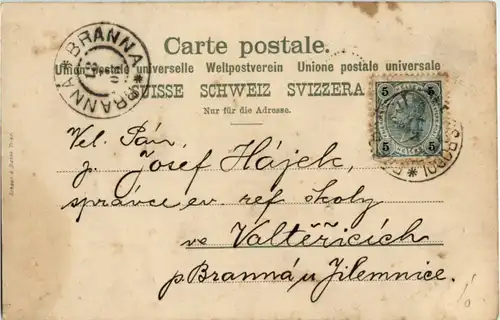 BRANNA * BRANNÁ *
Carte postale.
Union postale universelle Weltpostverein Unione postale universale
SUISSE SCHWEIZ SVIZZERA
Nur für die Adresse.
5 5
5 5
Vel. Pán,
p. Josef Hájek,
správce ev ref školy
ve Valtěřicích
p. Branná u Jilemnice.